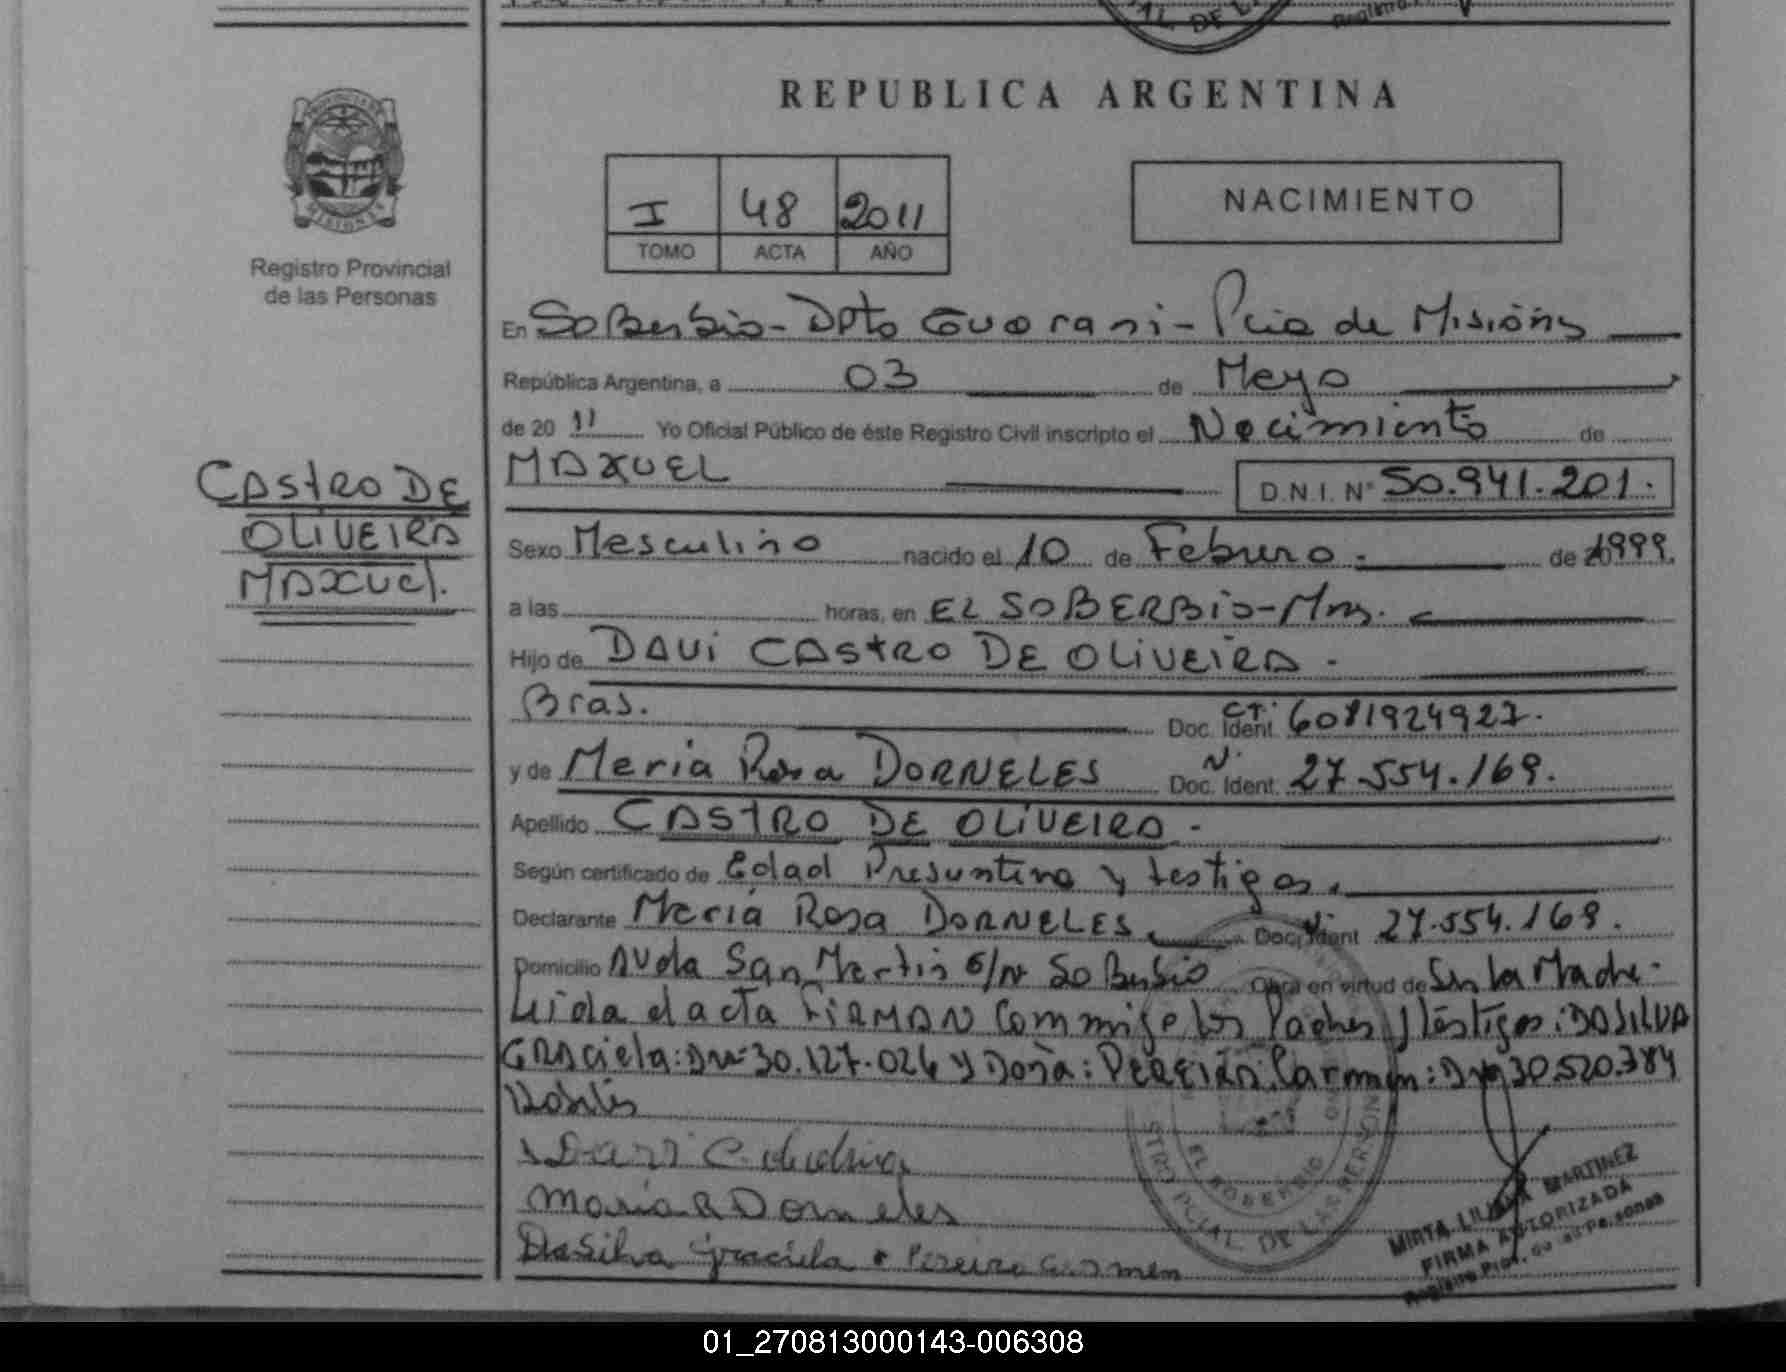 REPUBLICA ARGENTINA
PROVINCIA DE
MISIONES
Registro Provincial
de las Personas
I 48 2011
TOMO ACTA AÑO
NACIMIENTO
En Soberbio - Dpto Guarani - Pcia de Misiones
República Argentina, a 03 de Mayo
de 20 11 Yo Oficial Público de éste Registro Civil inscripto el Nacimiento de
MAXUEL D.N.I. Nº 50.941.201.
CASTRO DE
OLIVEIRA
MAXUEL.
Sexo Masculino nacido el 10 de Febrero. de 1999.
a las horas, en EL SOBERBIO - Mns.
Hijo de DAVI CASTRO DE OLIVEIRA.
Bras. Doc. Ident. CI: 6081924927.
y de Maria Rosa DORNELES Doc. Ident. N. 27.554.169.
Apellido CASTRO DE OLIVEIRA.
Según certificado de Edad Presuntiva y testigos.
Declarante Maria Rosa DORNELES. Doc. Ident. 27.554.169.
Domicilio Avda San Martin S/N Soberbio Obra en virtud de Ser la Madre.
Leida el acta FIRMAN Conmigo los Padres y testigos: DA SILVA
GRACiela: DNI 30.127.026 y Doña: PEREIRA Carmen: DNI 30.520.384
Habiles
Davi C. de Oliveira
Maria R Dorneles
Da Silva Graciela Pereira Carmen
EL SOBERBIO
PCIAL. DE LAS PERSONAS
MIRTA LILIANA MARTINEZ
FIRMA AUTORIZADA
Registro Prov. de las Personas
01_270813000143-006308